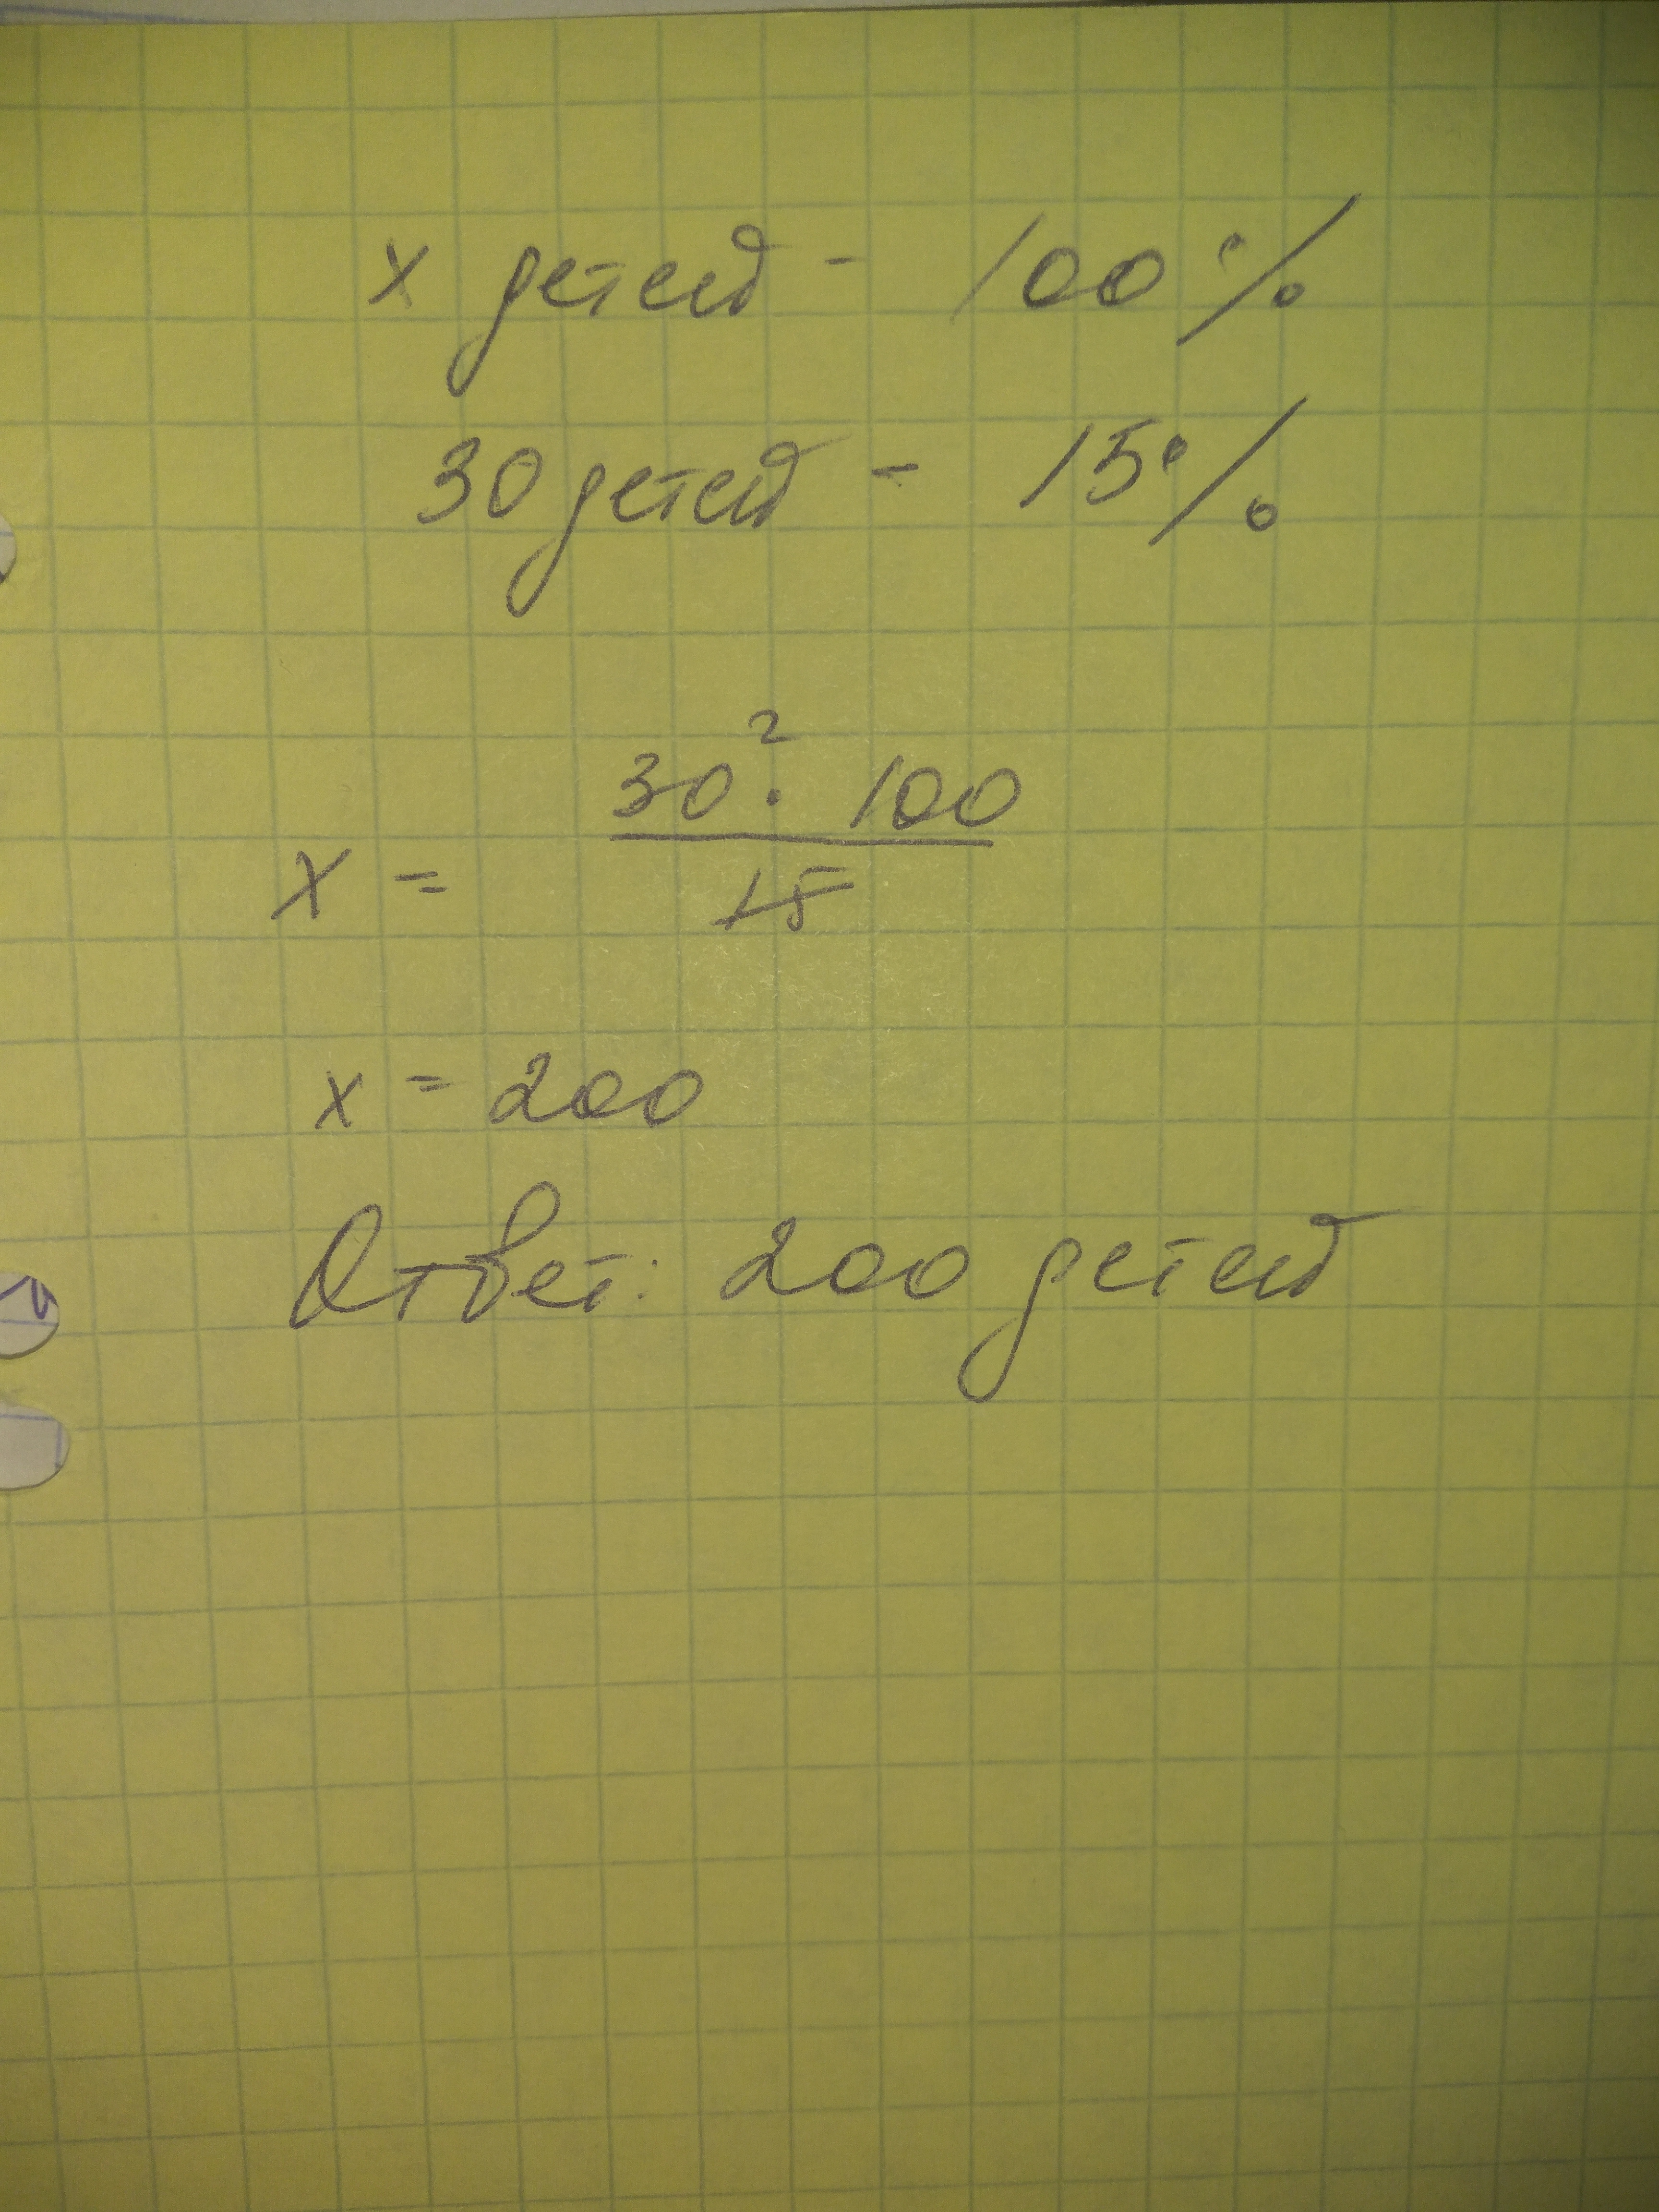 x детей - 100%
30 детей - 15%
2
30 · 100
x =
15
x = 200
Ответ: 200 детей